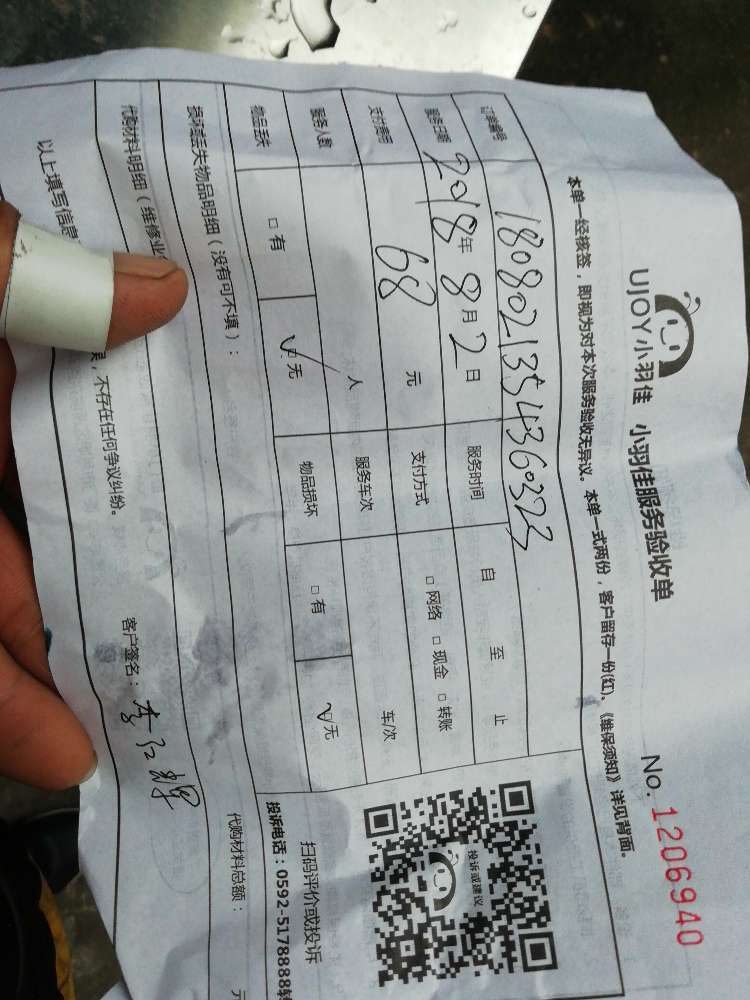 UJOY小羽佳 小羽佳服务验收单
No. 1206940
本单一经核签，即视为对本次服务验收无异议。本单一式两份，客户留存一份(红)。《维保须知》详见背面。
订单编号 1808021354360323
服务日期 2018年8月2日 服务时间 自 至 止
支付费用 68 元 支付方式 □网络 □现金 □转账
服务人数 人 服务车次 车/次
物品丢失 □有 ☑无 物品损坏 □有 ☑无
投诉或建议
扫码评价或投诉
投诉电话：0592-5178888转
损坏丢失物品明细（没有可不填）：
代购材料明细（维修业
代购材料总额： 元
以上填写信息
误，不存在任何争议纠纷。
客户签名：李红辉